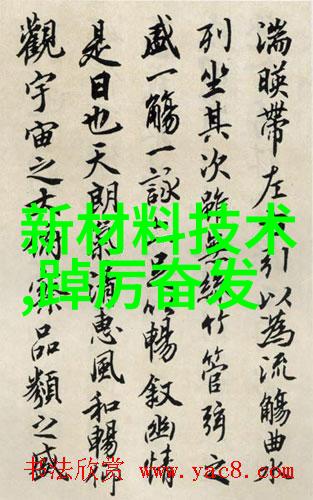 湍暎帶左引以為流觴曲
列坐其次雖無絲竹管弦之
盛一觴一詠足以暢敘幽情
是日也天朗氣清惠風和暢仰
觀宇宙之大俯察品類之盛
新材料技术
,踔厉奋发
书法欣赏 www.yac8.com